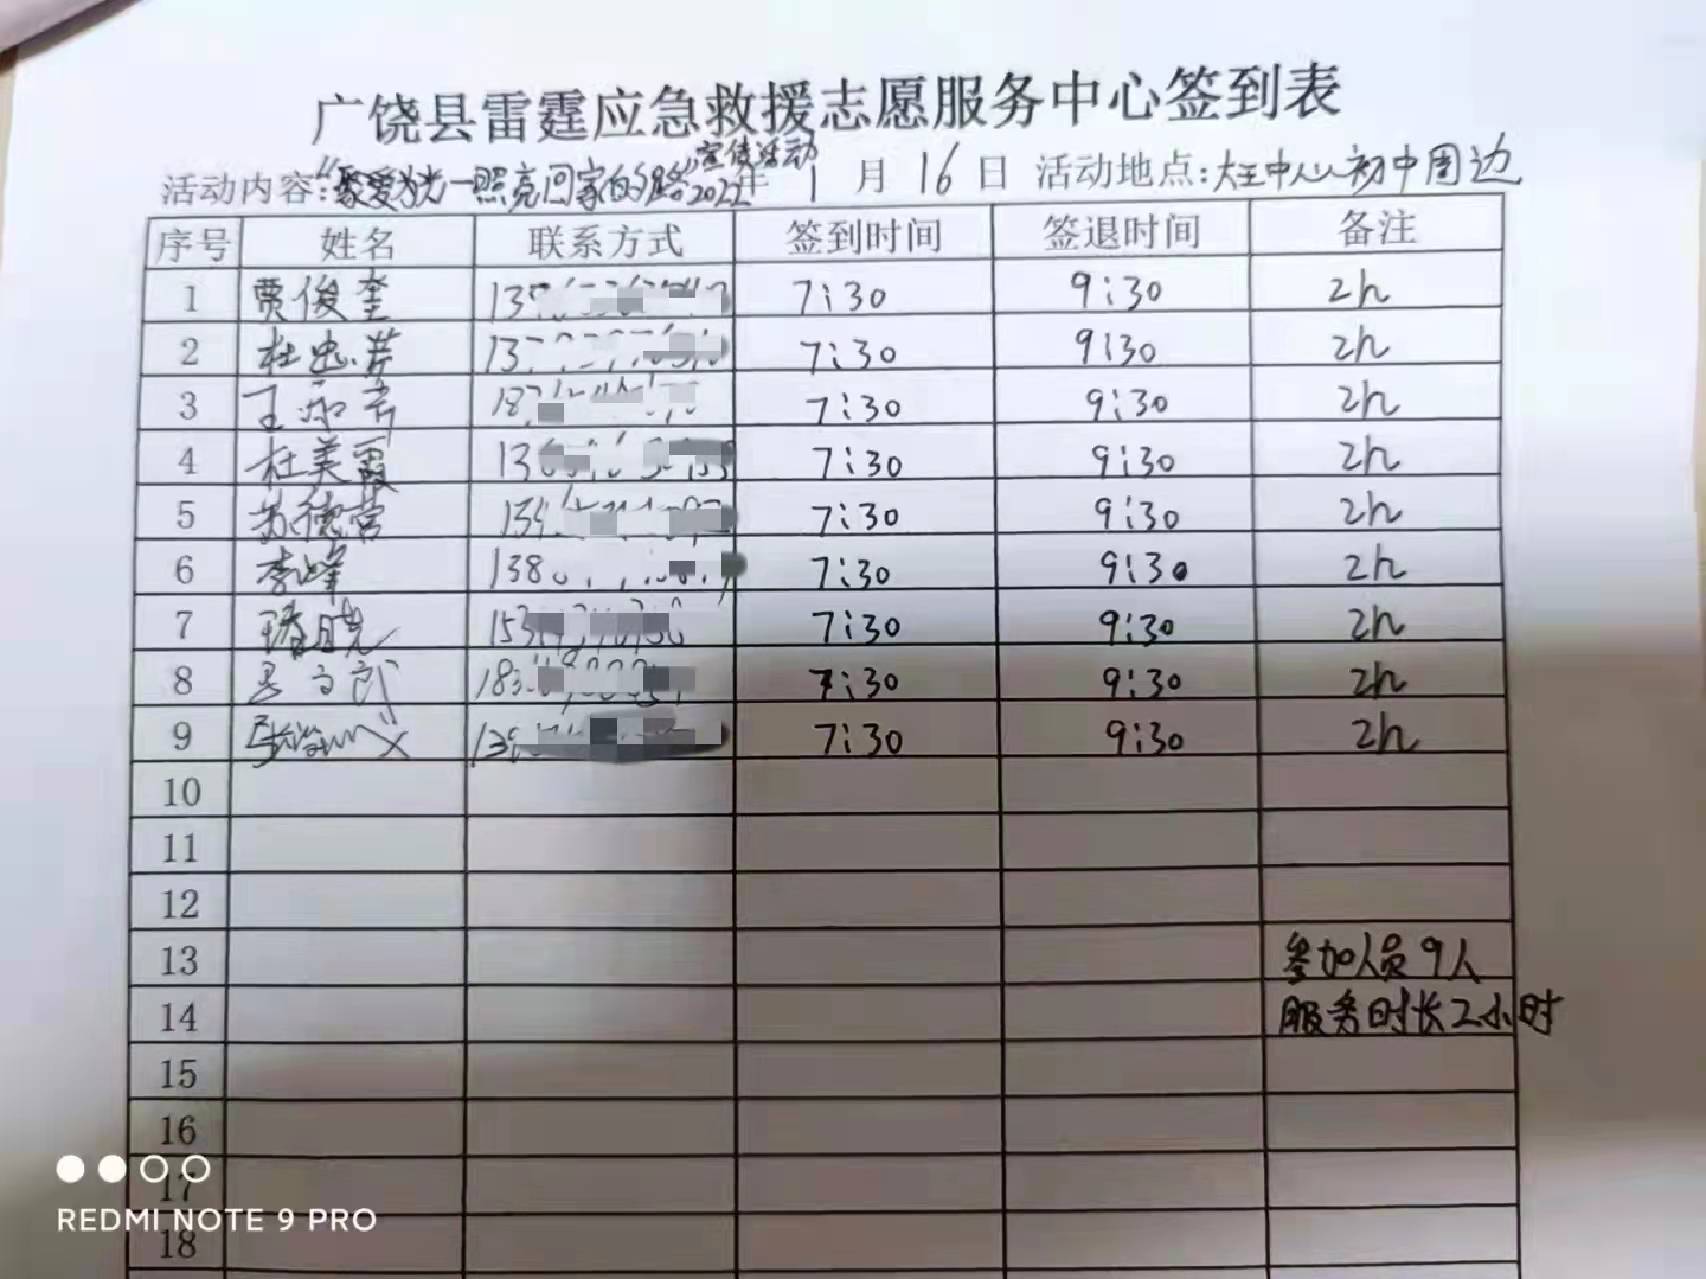 广饶县雷霆应急救援志愿服务中心签到表
活动内容:“聚爱为光一照亮回家的路”宣传活动 2022年 1月16日 活动地点:大王中心初中周边
序号 姓名 联系方式 签到时间 签退时间 备注
1 贾俊奎 7:30 9:30 2h
2 杜忠芳 137 7:30 9:30 2h
3 王 7:30 9:30 2h
4 杜美霞 13 7:30 9:30 2h
5 苏德营 7:30 9:30 2h
6 李峰 138 7:30 9:30 2h
7 153 7:30 9:30 2h
8 183 7:30 9:30 2h
9 张 7:30 9:30 2h
10
11
12
13 参加人员9人
14 服务时长2小时
15
16
17
18
REDMI NOTE 9 PRO